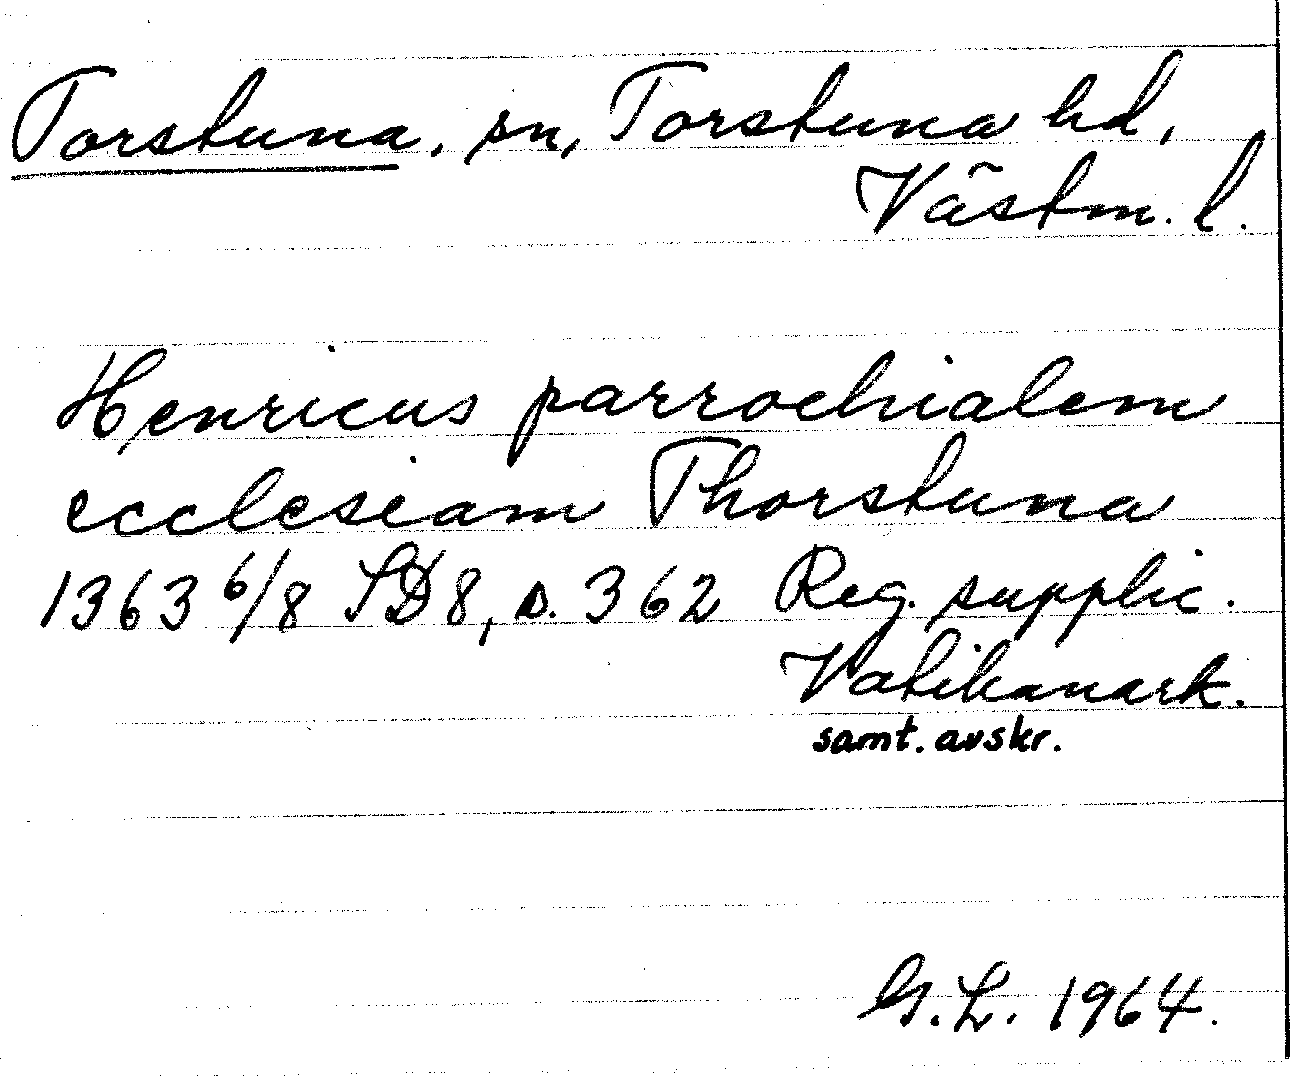 Torstuna, sn, Torstuna hd,
Västm. l.
Henricus parrochialem
ecclesiam Thorstuna
1363 6/8 SD8, s. 362 Reg. supplic.
Vatikanark.
samt. avskr.
G. L. 1964.